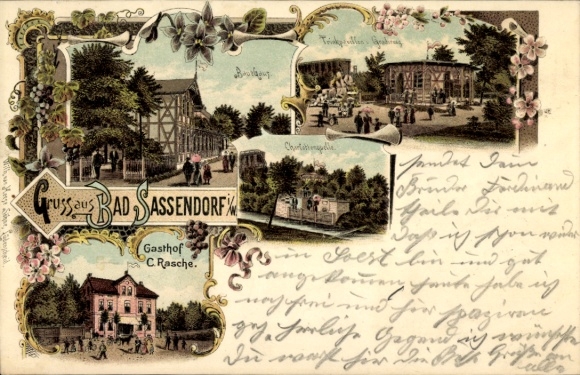 Badehaus
Trinkpavillon u. Gradirung
Charlottenquelle
Gruss aus BAD SASSENDORF i/W.
Gasthof
C. Rasche.
sendet Dein
Bruder Ferdinand
theile Dir mit
daß ich schon wieder
in Soest bin und gut
angekommen heute habe ich
noch frei und hier spaziren
herrliche Gegend ich wünschte
Du wärst hier die B. Grüße an
alle